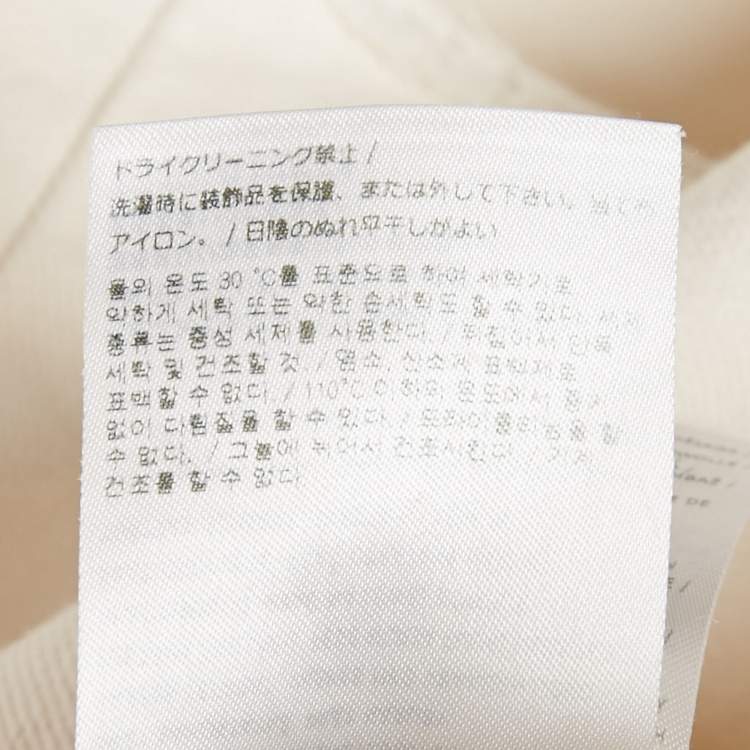 ドライクリーニング禁止 /
洗濯時に装飾品を保護、または外して下さい。当て布
アイロン。 / 日陰のぬれ平干しがよい
물의 온도 30 °C를 표준으로 하여 세탁기로
약하게 세탁 또는 약한 손세탁도 할 수 있다.
종류는 중성 세제를 사용한다. / 뒤집어서 단독
세탁 및 건조할 것. / 염소, 산소계 표백제로
표백할 수 없다. / 110°C 이하의 온도에서 증기
없이 다림질을 할 수 있다. / 드라이클리닝을 할
수 없다. / 그늘에 뉘어서 건조시킨다. / 기계
건조를 할 수 없다.
DE